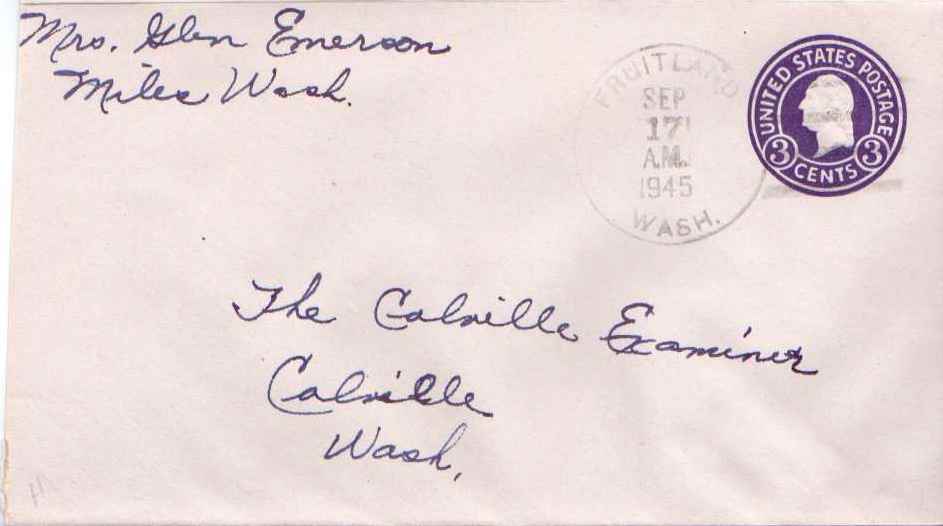 Mrs. Glen Emerson
Miles Wash.
FRUITLAND
SEP
17
A.M.
1945
WASH.
UNITED STATES POSTAGE
3 CENTS 3
The Colville Examiner
Colville
Wash.